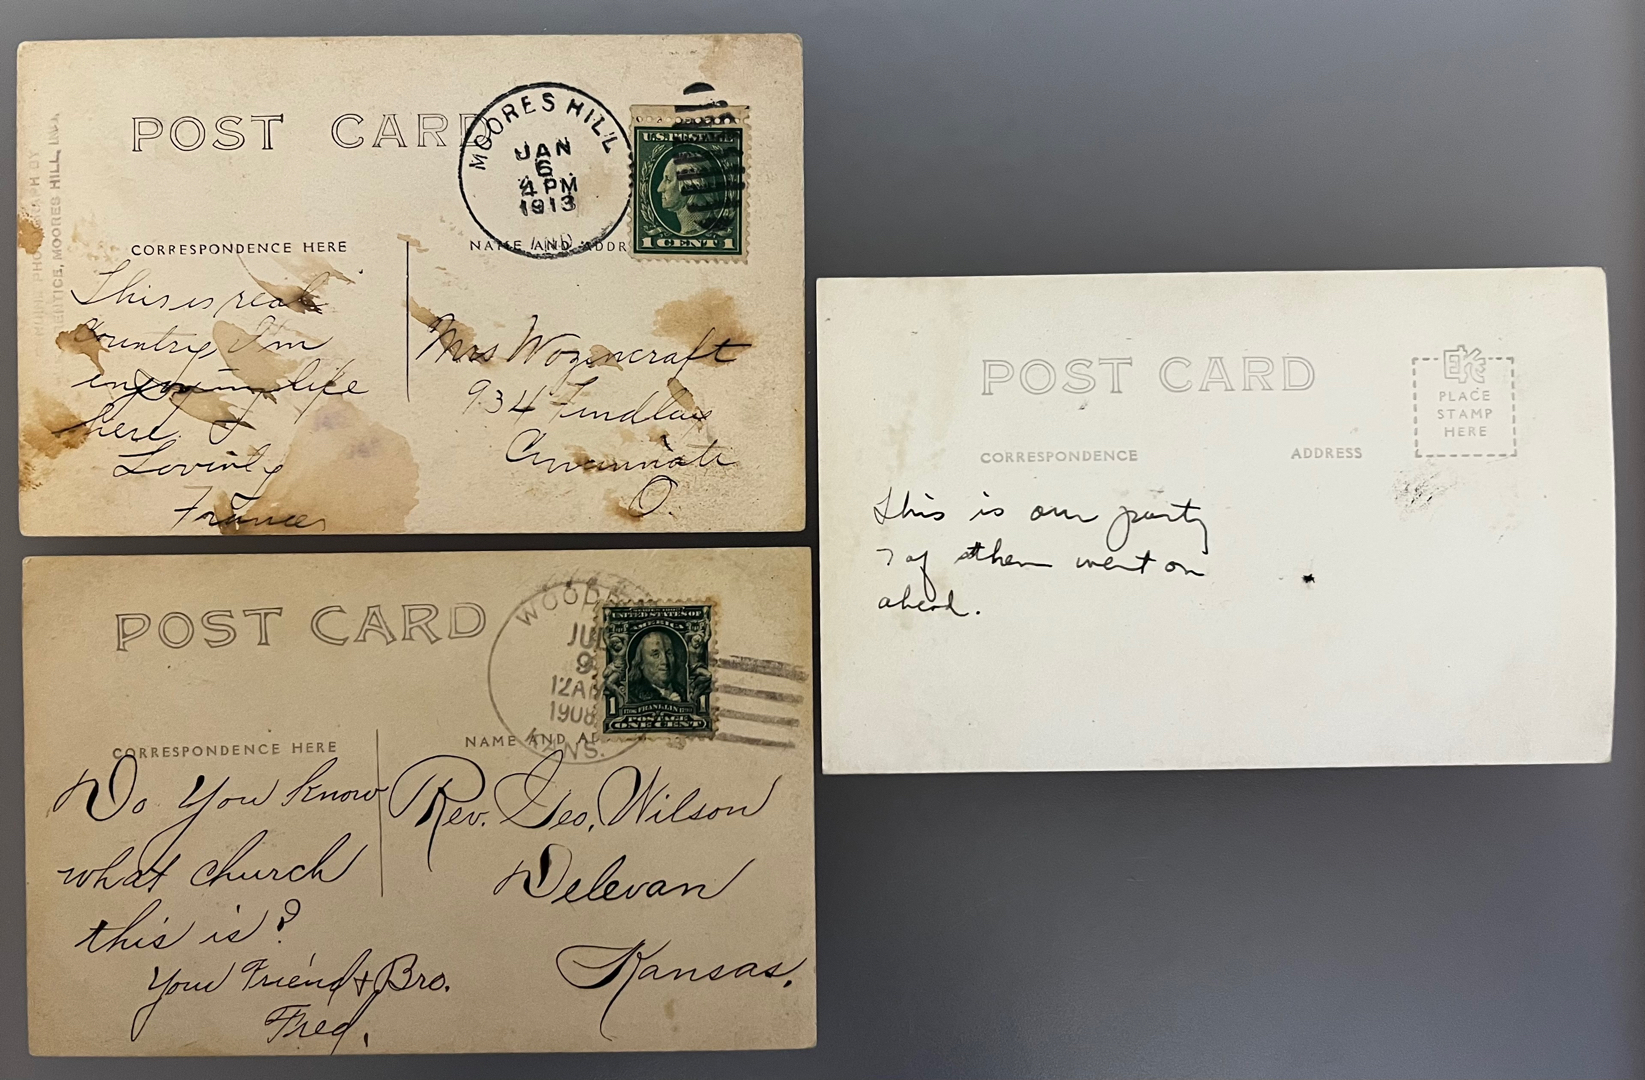 POST CARD
MOORES HILL
JAN
6
4 PM
1913
IND.
U.S. POSTAGE
1 CENT 1
PRENTICE, MOORES HILL, IND.
CORRESPONDENCE HERE
NAME AND ADDR
This is real
country I'm
enjoying life
here.
Lovingly
Frances
Mrs Wozencraft
934 Findlay
Cincinnati
O.
POST CARD
JUL
9
12AM
1908
KANS.
UNITED STATES OF
AMERICA
1 FRANKLIN 1
POSTAGE
ONE CENT
CORRESPONDENCE HERE
NAME AND AD
Do You know
what church
this is?
Your Friend & Bro.
Fred.
Rev. Geo. Wilson
Delevan
Kansas.
POST CARD
EKC
PLACE
STAMP
HERE
CORRESPONDENCE
ADDRESS
This is our party
7 of them went on
ahead.